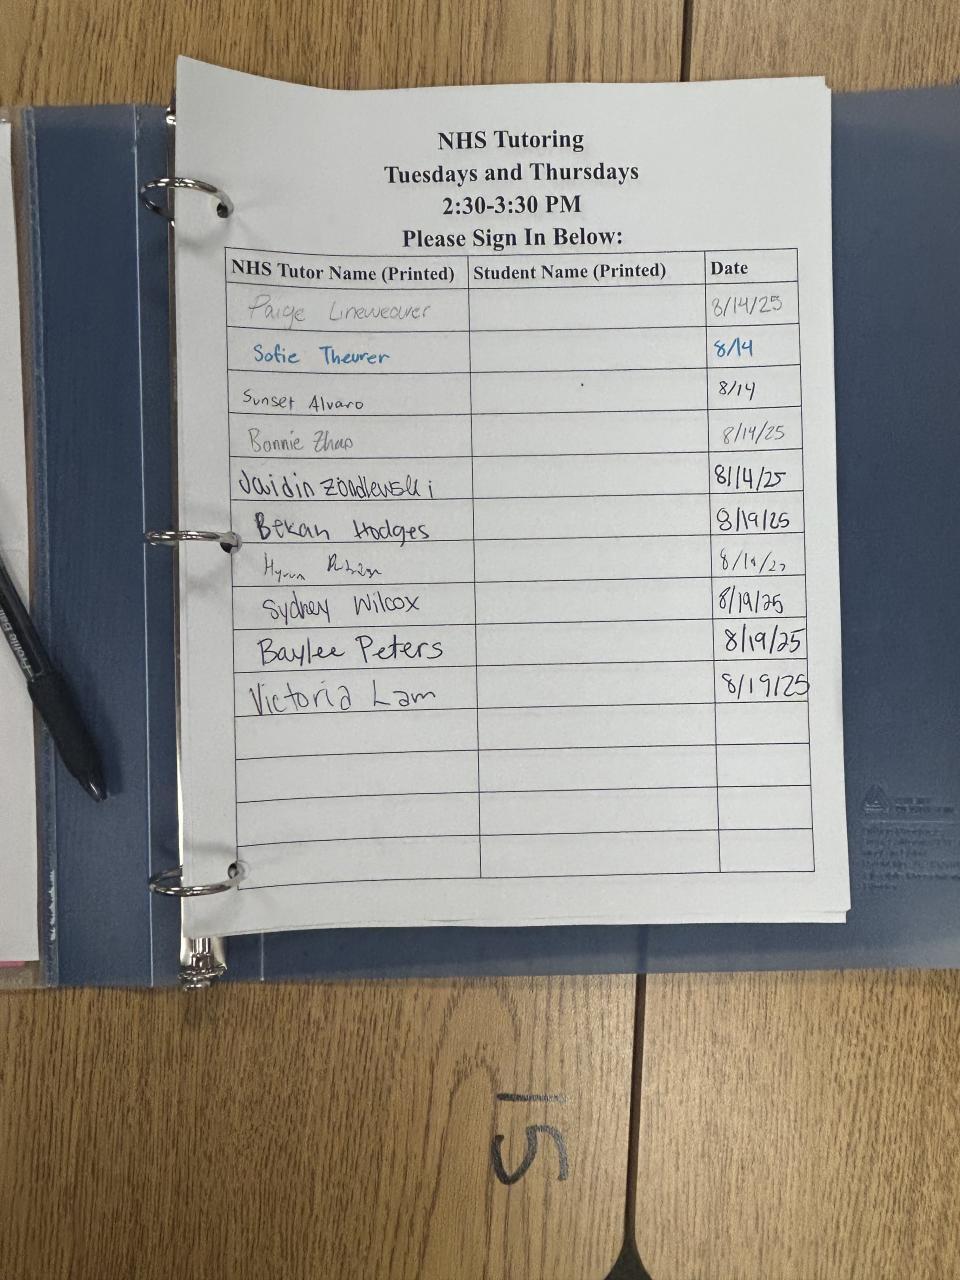 NHS Tutoring
Tuesdays and Thursdays
2:30-3:30 PM
Please Sign In Below:
NHS Tutor Name (Printed) Student Name (Printed) Date
Paige Lineweaver 8/14/25
Sofie Theurer 8/14
Sunset Alvaro 8/14
Bonnie Zhao 8/14/25
Jaidin 8/14/25
Bekan Hodges 8/19/25
Sydney Wilcox 8/19/25
Baylee Peters 8/19/25
Victoria Lam 8/19/25
15